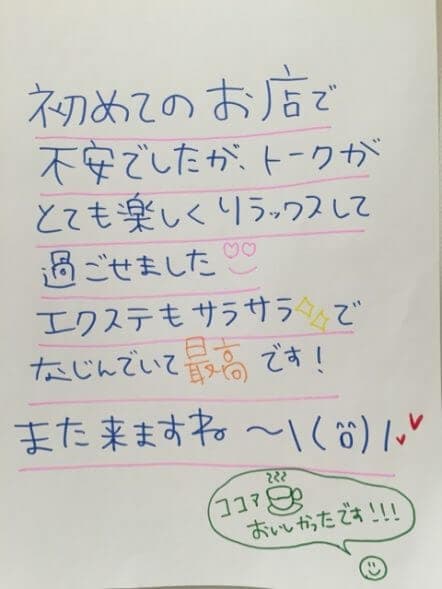 初めてのお店で
不安でしたが、トークが
とても楽しくリラックスして
過ごせました
エクステもサラサラで
なじんでいて最高です!
また来ますね 〜\(^o^)/
ココア
おいしかったです!!!